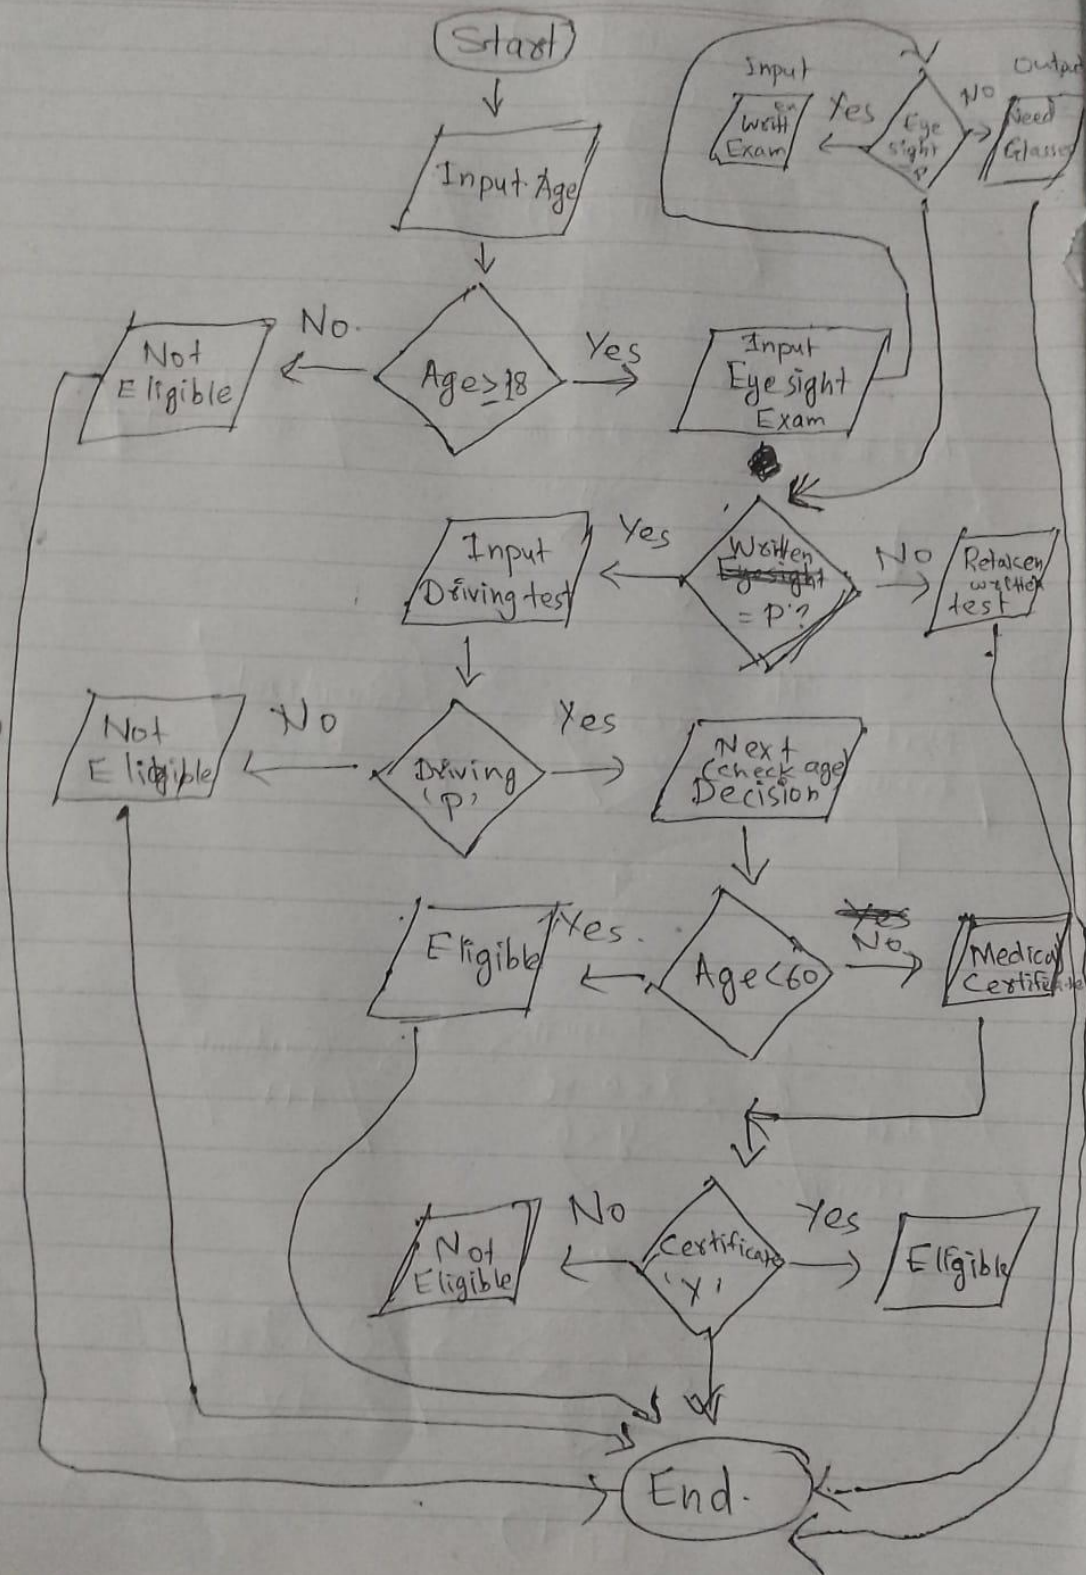 Start
Input Age
Age≥18
No.
Not
Eligible
Yes
Input
Eye sight
Exam
Eye
sight
P
Yes
Input
Written
Exam
No
Output
Need
Glasse
Written
Eyesight
= P'?
No
Retaken
written
test
Yes
Input
Driving test
Driving
'P'
No
Not
Eligible
Yes
Next
Check age
Decision
Age<60
Yes.
Eligible
Yes
No
Medical
Certificate
Certificate
'Y'
No
Not
Eligible
Yes
Eligible
End.